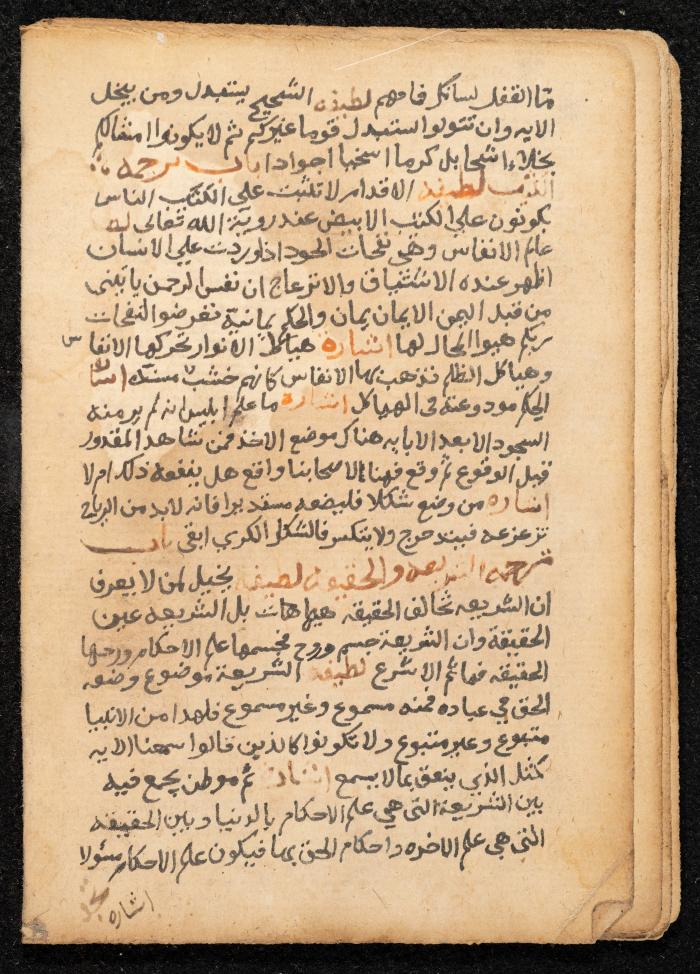 ثم القفل لسانك فافهم لطيفه الشحيح يستبدل ومن يبخل
الايه وان تتولوا استبدل قوما غيركم ثم لا يكونوا امثالكم
بخلاء اشحا بل كرما اسخيا اجوادا باب ترجمه
لطيفه الاقدام لا تثبت على الكثب الناس
يكونون علي الكثب الابيض عند روية الله تعالى
عالم الانفاس وهي نفحات الجود اذا وردت علي الانسان
اظهر عنده الاشتياق والانزعاج ان نفس الرحمن ياتيني
من قبل اليمن الايمان يمان والحكمه يمانية تعرضوا لنفحات
ربكم هيوا المحال لها اشاره هياكل الانوار تحركها الانفاس
وهياكل الظلم تذهب بها الانفاس كانهم خشب مسنده اشاره
الحكم مودوعة في الهياكل اشاره ما علم ابليس انه لم يرد منه
السجود الا بعد الابايه هناك موضع الاخذ فمن شاهد المقدور
قبل الوقوع ثم وقع فهنا لاصحابنا واقع هل ينفعه ذلك ام لا
اشاره من وضع شكلا فليضعه مستديرا فانه لابد من الرياح
تزعزعه فيتدحرج ولا ينكسر فالشكل الكري ابقى باب
ترجمه الشريعه والحقيقه لطيفه يخيل لمن لا يعرف
ان الشريعه تخالف الحقيقه هيهات بل الشريعه عين
الحقيقة وان الشريعة جسم وروح فجسمها علم الاحكام وروحها
الحقيقه فما ثم الا شرع لطيفه الشريعة موضوع وضعه
الحق في عباده فمنه مسموع وغير مسموع فلهذا من الانبيا
متبوع وغير متبوع ولا تكونوا كالذين قالوا سمعنا الايه
كمثل الذي ينعق بما لا يسمع اشاره ثم موطن يجمع فيه
بين الشريعة التي هي علم الاحكام بالدنيا وبين الحقيقه
التي هي علم الاخره واحكام الحق بها فيكون علم الاحكام مسولا
اشاره